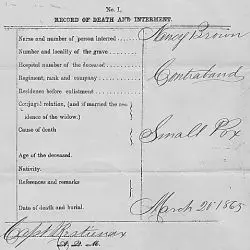 No. 1.
RECORD OF DEATH AND INTERMENT.
Name and number of person interred Henry Brown
Number and locality of the grave
Hospital number of the deceased
Regiment, rank and company Contraband
Residence before enlistment
Conjugal relation, (and if married the residence of the widow.)
Cause of death Small Pox
Age of the deceased.
Nativity.
References and remarks
Date of death and burial. March 21st 1865
Capt
A. Q. M.